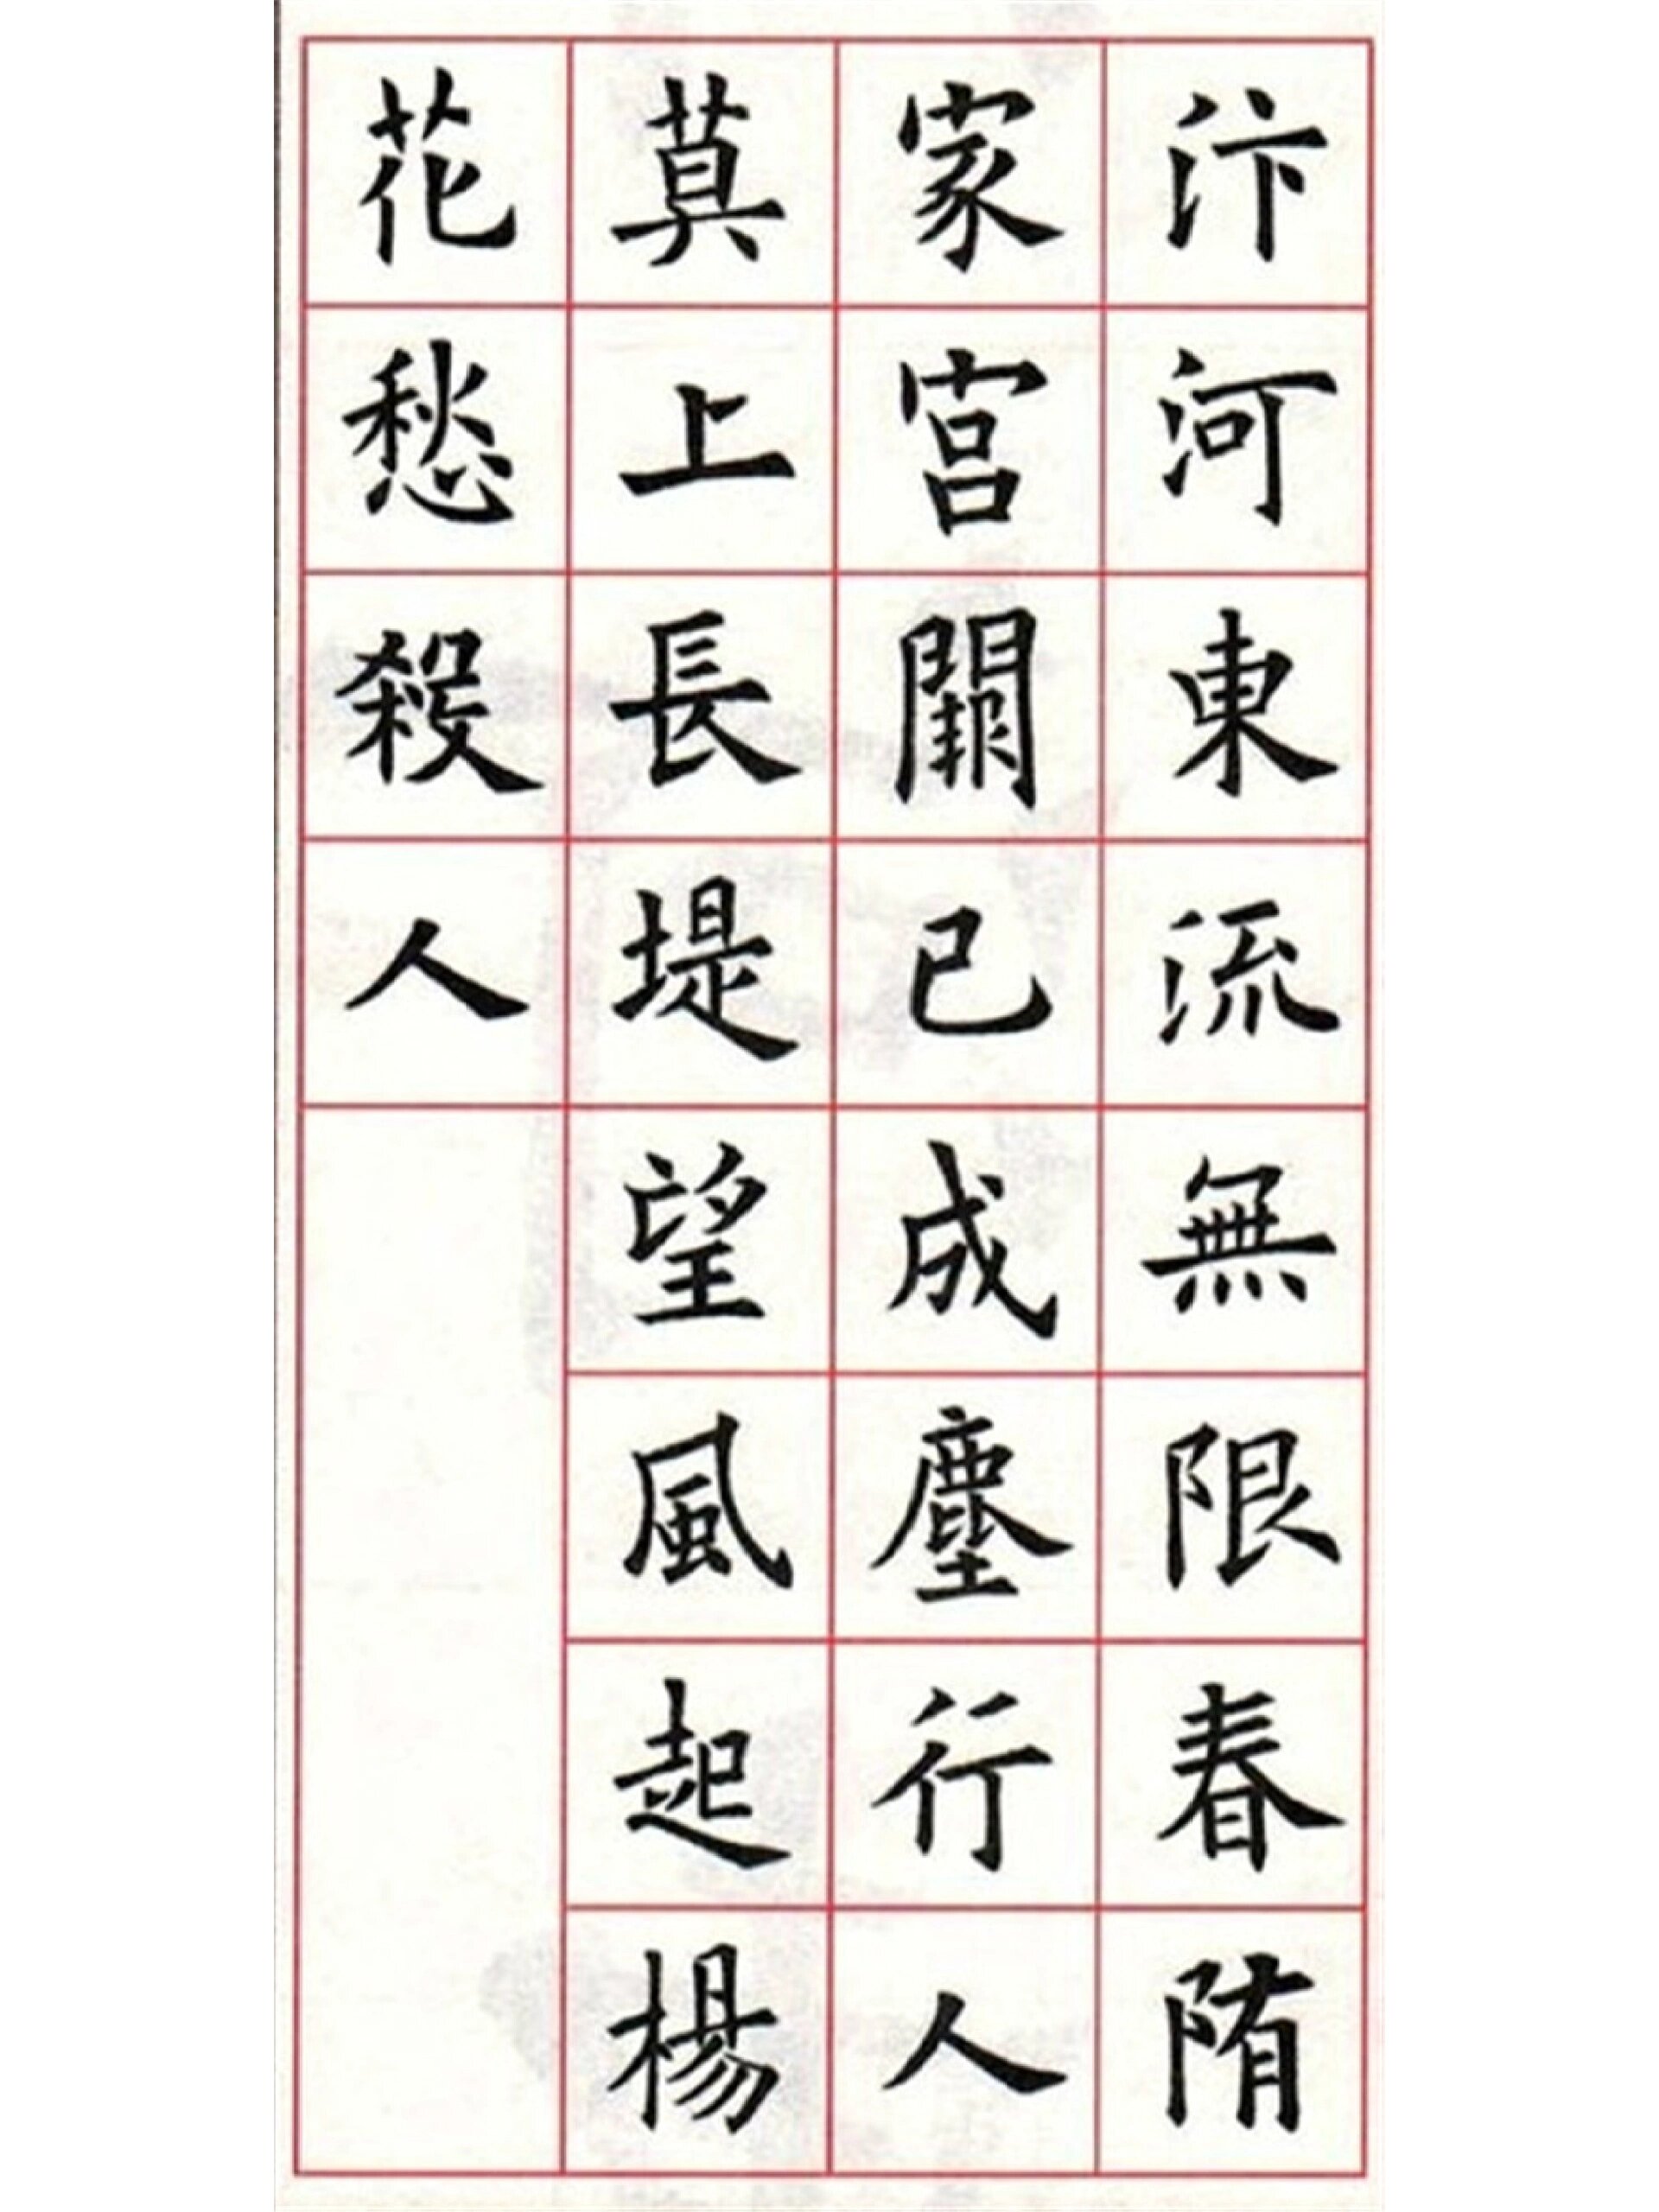 汴河東流無限春隋
家宮闕已成塵行人
莫上長堤望風起楊
花愁殺人